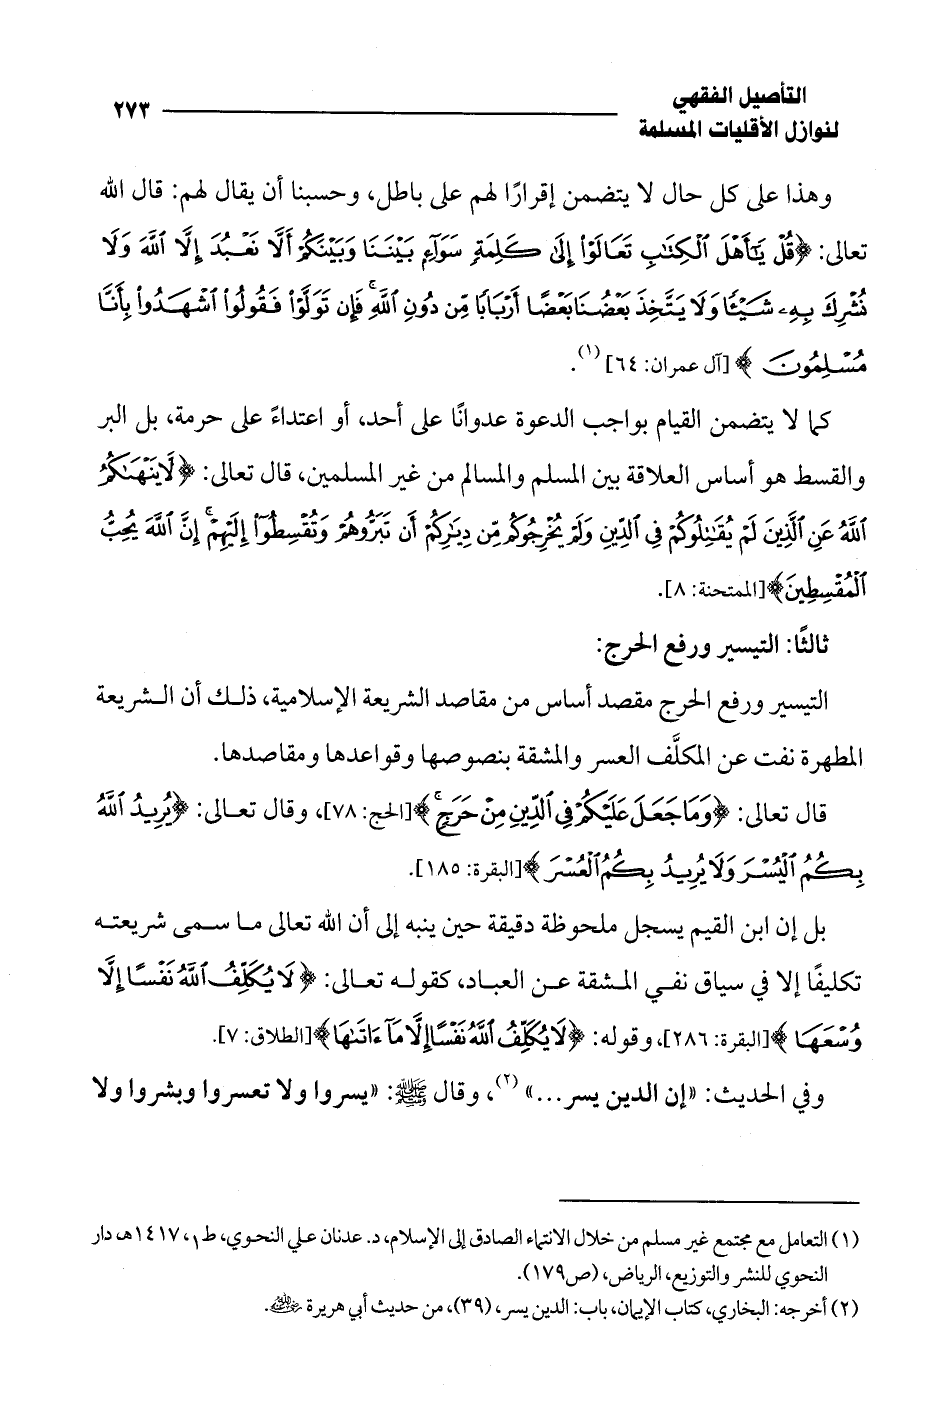 التأصيل الفقهي
لنوازل الأقليات المسلمة
٢٧٣
وهذا على كل حال لا يتضمن إقرارًا لهم على باطل، وحسبنا أن يقال لهم: قال الله
تعالى: ﴿قُلْ يَٰٓأَهْلَ ٱلْكِتَٰبِ تَعَالَوْا۟ إِلَىٰ كَلِمَةٍ سَوَآءٍۭ بَيْنَنَا وَبَيْنَكُمْ أَلَّا نَعْبُدَ إِلَّا ٱللَّهَ وَلَا
نُشْرِكَ بِهِۦ شَيْـًٔا وَلَا يَتَّخِذَ بَعْضُنَا بَعْضًا أَرْبَابًا مِّن دُونِ ٱللَّهِ ۚ فَإِن تَوَلَّوْا۟ فَقُولُوا۟ ٱشْهَدُوا۟ بِأَنَّا
مُسْلِمُونَ﴾ [آل عمران: ٦٤] (١).
كما لا يتضمن القيام بواجب الدعوة عدوانًا على أحد، أو اعتداءً على حرمة، بل البر
والقسط هو أساس العلاقة بين المسلم والمسالم من غير المسلمين، قال تعالى: ﴿لَّا يَنْهَىٰكُمُ
ٱللَّهُ عَنِ ٱلَّذِينَ لَمْ يُقَٰتِلُوكُمْ فِى ٱلدِّينِ وَلَمْ يُخْرِجُوكُم مِّن دِيَٰرِكُمْ أَن تَبَرُّوهُمْ وَتُقْسِطُوٓا۟ إِلَيْهِمْ ۚ إِنَّ ٱللَّهَ يُحِبُّ
ٱلْمُقْسِطِينَ﴾ [الممتحنة: ٨].
ثالثًا: التيسير ورفع الحرج:
التيسير ورفع الحرج مقصد أساس من مقاصد الشريعة الإسلامية، ذلك أن الشريعة
المطهرة نفت عن المكلَّف العسر والمشقة بنصوصها وقواعدها ومقاصدها.
قال تعالى: ﴿وَمَا جَعَلَ عَلَيْكُمْ فِى ٱلدِّينِ مِنْ حَرَجٍ ۚ﴾ [الحج: ٧٨]، وقال تعالى: ﴿يُرِيدُ ٱللَّهُ
بِكُمُ ٱلْيُسْرَ وَلَا يُرِيدُ بِكُمُ ٱلْعُسْرَ﴾ [البقرة: ١٨٥].
بل إن ابن القيم يسجل ملحوظة دقيقة حين ينبه إلى أن الله تعالى ما سمى شريعته
تكليفًا إلا في سياق نفي المشقة عن العباد، كقوله تعالى: ﴿لَا يُكَلِّفُ ٱللَّهُ نَفْسًا إِلَّا
وُسْعَهَا﴾ [البقرة: ٢٨٦]، وقوله: ﴿لَا يُكَلِّفُ ٱللَّهُ نَفْسًا إِلَّا مَآ ءَاتَىٰهَا﴾ [الطلاق: ٧].
وفي الحديث: «إن الدين يسر...» (٢)، وقال ﷺ: «يسروا ولا تعسروا وبشروا ولا
(١) التعامل مع مجتمع غير مسلم من خلال الانتماء الصادق إلى الإسلام، د. عدنان علي النحوي، ط١، ١٤١٧هـ، دار
النحوي للنشر والتوزيع، الرياض، (ص١٧٩).
(٢) أخرجه: البخاري، كتاب الإيمان، باب: الدين يسر، (٣٩)، من حديث أبي هريرة رضي الله عنه.